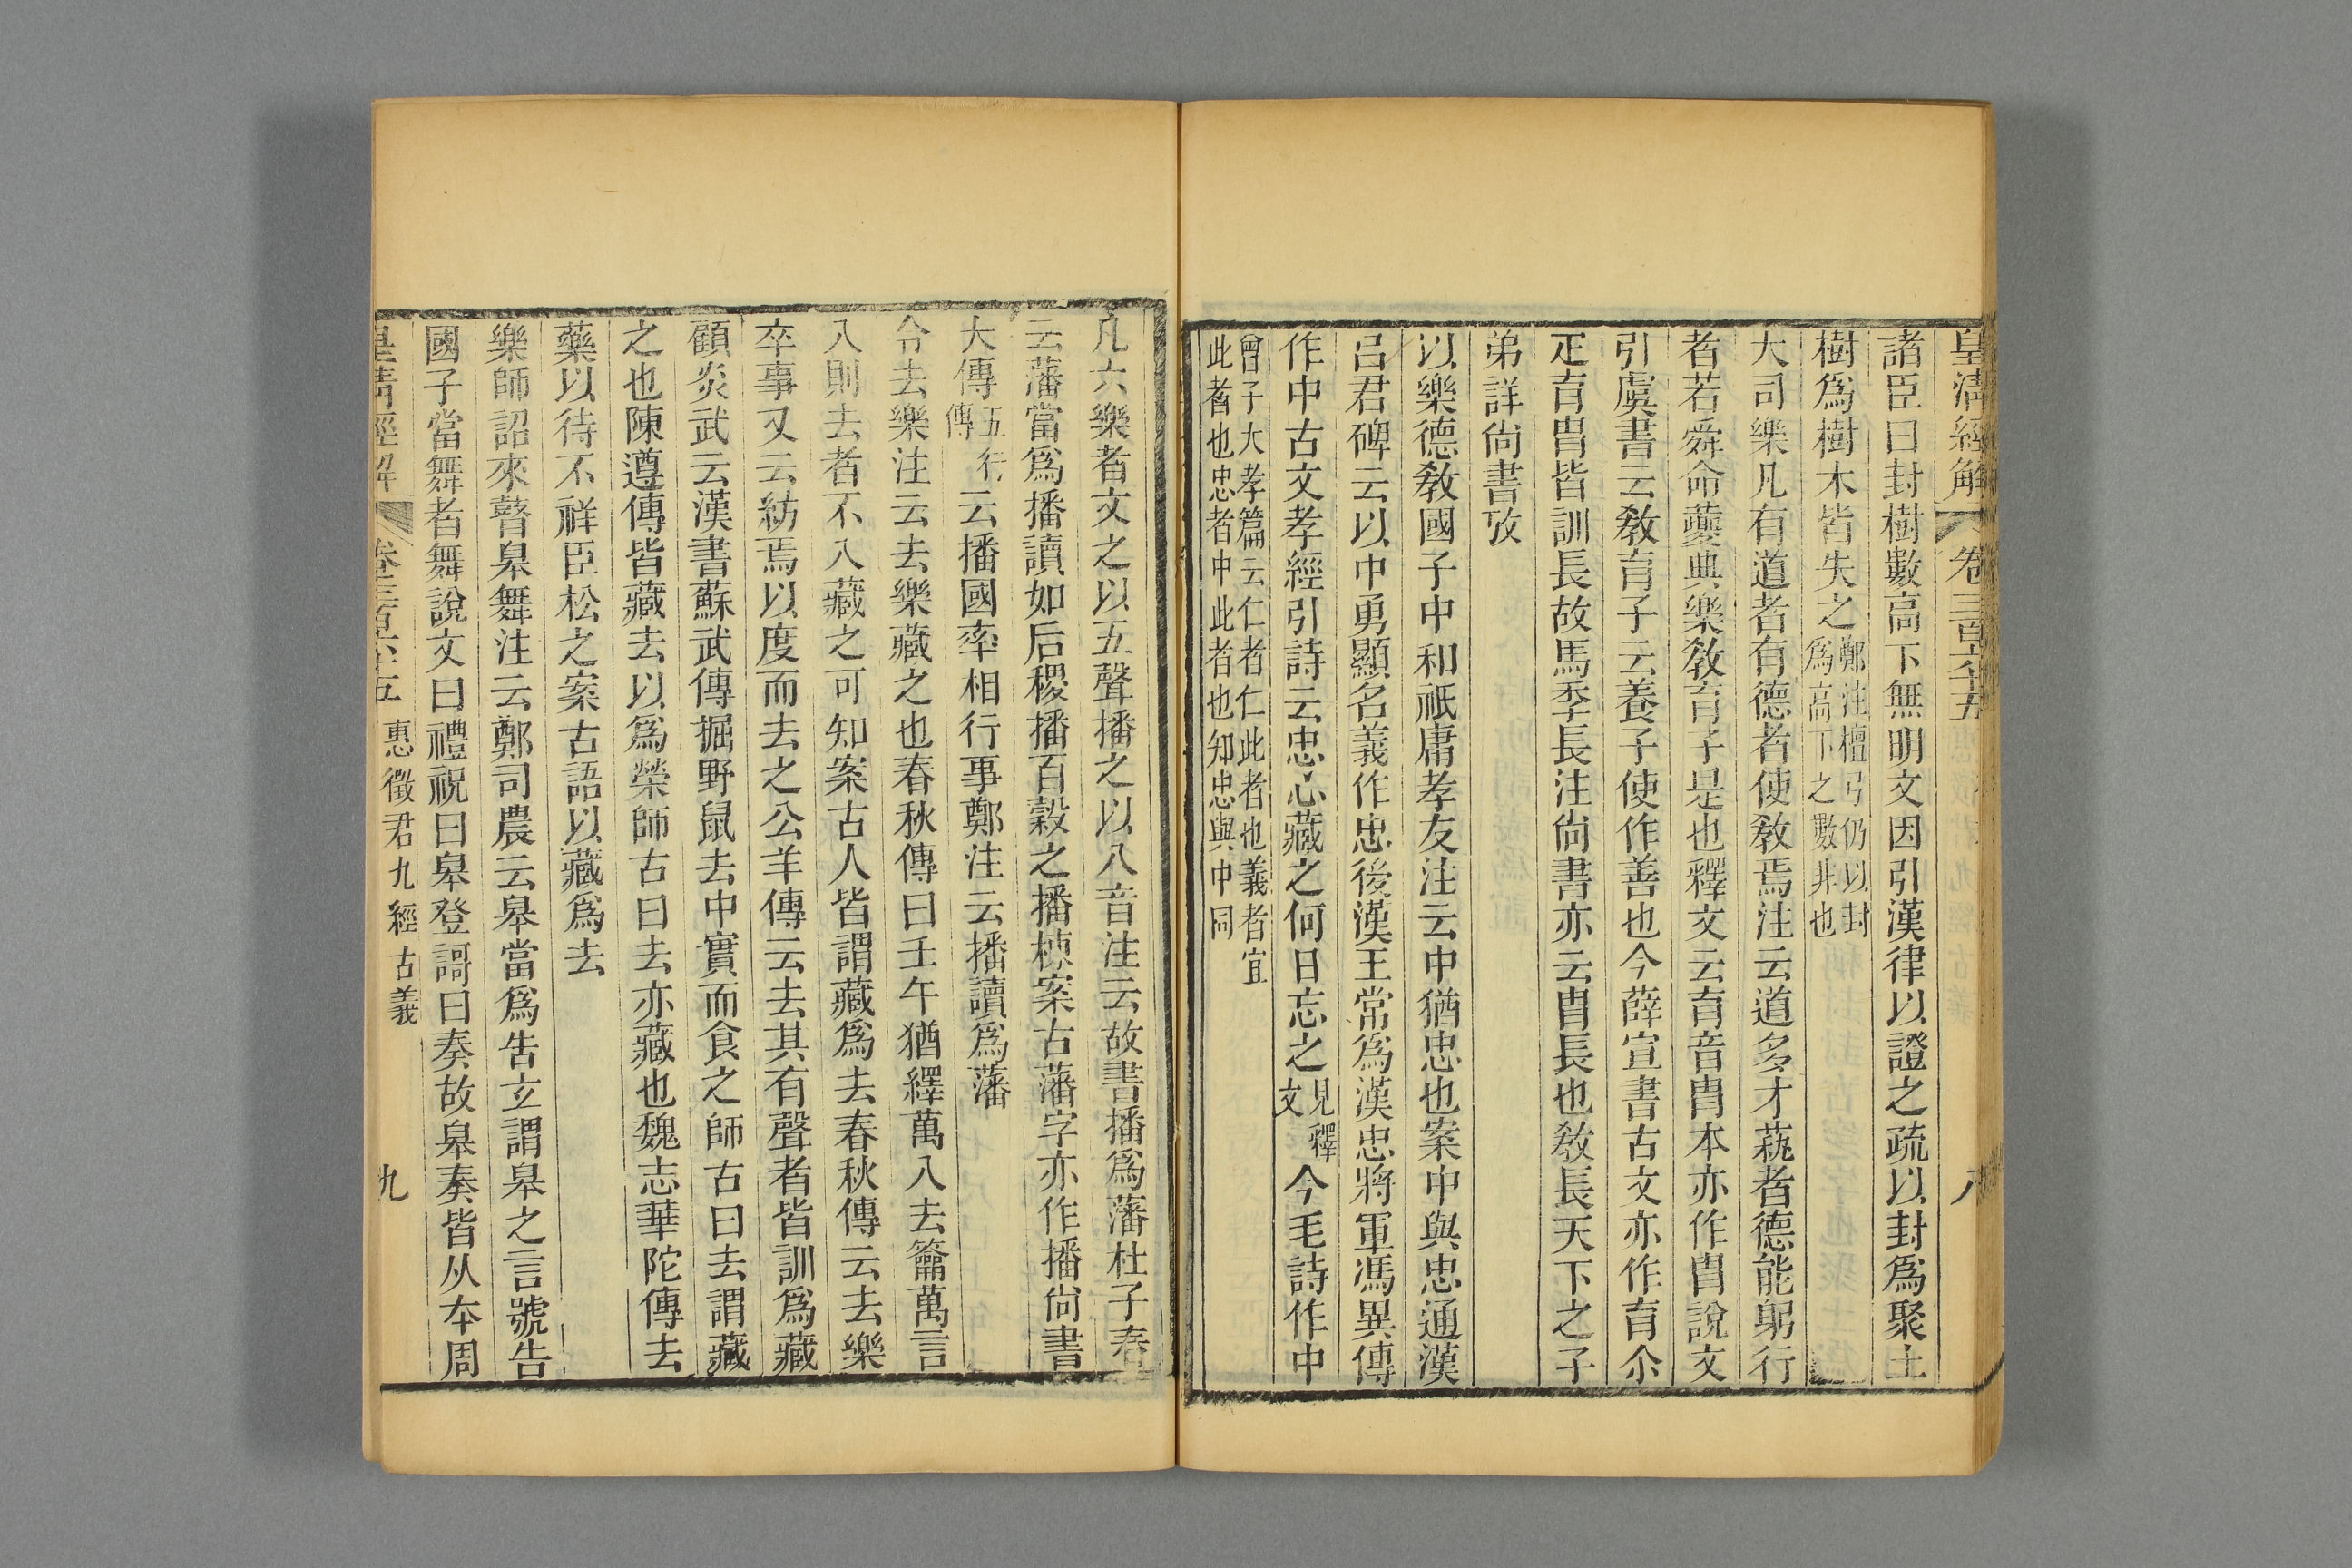 皇清經解 卷三百六十五 八
諸臣曰封樹數高下無明文因引漢律以證之疏以封爲聚土
樹爲樹木皆失之鄭注檀弓仍以封爲高下之數非也
大司樂凡有道者有德者使敎焉注云道多才蓺者德能躬行
者若舜命夔典樂敎育子是也釋文云育音胄本亦作胄說文
引虞書云敎育子云養子使作善也今薛宣書古文亦作育尒
疋育胄皆訓長故馬季長注尙書亦云胄長也敎長天下之子
弟詳尙書攷
以樂德敎國子中和祗庸孝友注云中猶忠也案中與忠通漢
呂君碑云以中勇顯名義作忠後漢王常爲漢忠將軍馮異傳
作中古文孝經引詩云忠心藏之何日忘之見釋文今毛詩作中
曾子大孝篇云仁者仁此者也義者宜
此者也忠者中此者也知忠與中同
凡六樂者文之以五聲播之以八音注云故書播爲藩杜子春
云藩當爲播讀如后稷播百穀之播棟案古藩字亦作播尙書
大傳五行傳云播國率相行事鄭注云播讀爲藩
令去樂注云去樂藏之也春秋傳曰壬午猶繹萬入去籥萬言
入則去者不入藏之可知案古人皆謂藏爲去春秋傳云去樂
卒事又云紡焉以度而去之公羊傳云去其有聲者皆訓爲藏
顧炎武云漢書蘇武傳掘野鼠去中實而食之師古曰去謂藏
之也陳遵傳皆藏去以爲榮師古曰去亦藏也魏志華陀傳去
藥以待不祥臣松之案古語以藏爲去
樂師詔來瞽臯舞注云鄭司農云臯當爲告玄謂臯之言號告
國子當舞者舞說文曰禮祝曰臯登謌曰奏故臯奏皆从夲周
皇清經解 卷三百六十五 惠徵君九經古義 九